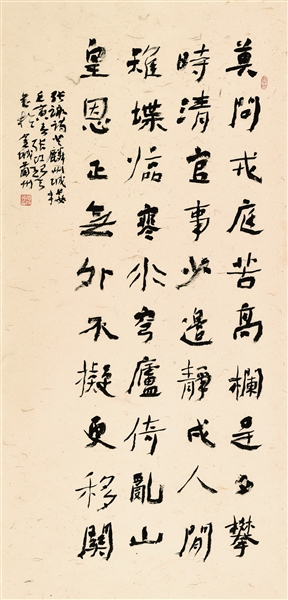 莫問戎庭苦高欄是可攀
時清官事少邊靜戍人閒
雉堞臨寒水穹廬倚亂山
皇恩正無外不擬更移關
張詠詩登麟州城樓
壬寅春張改琴
書於金城蘭州